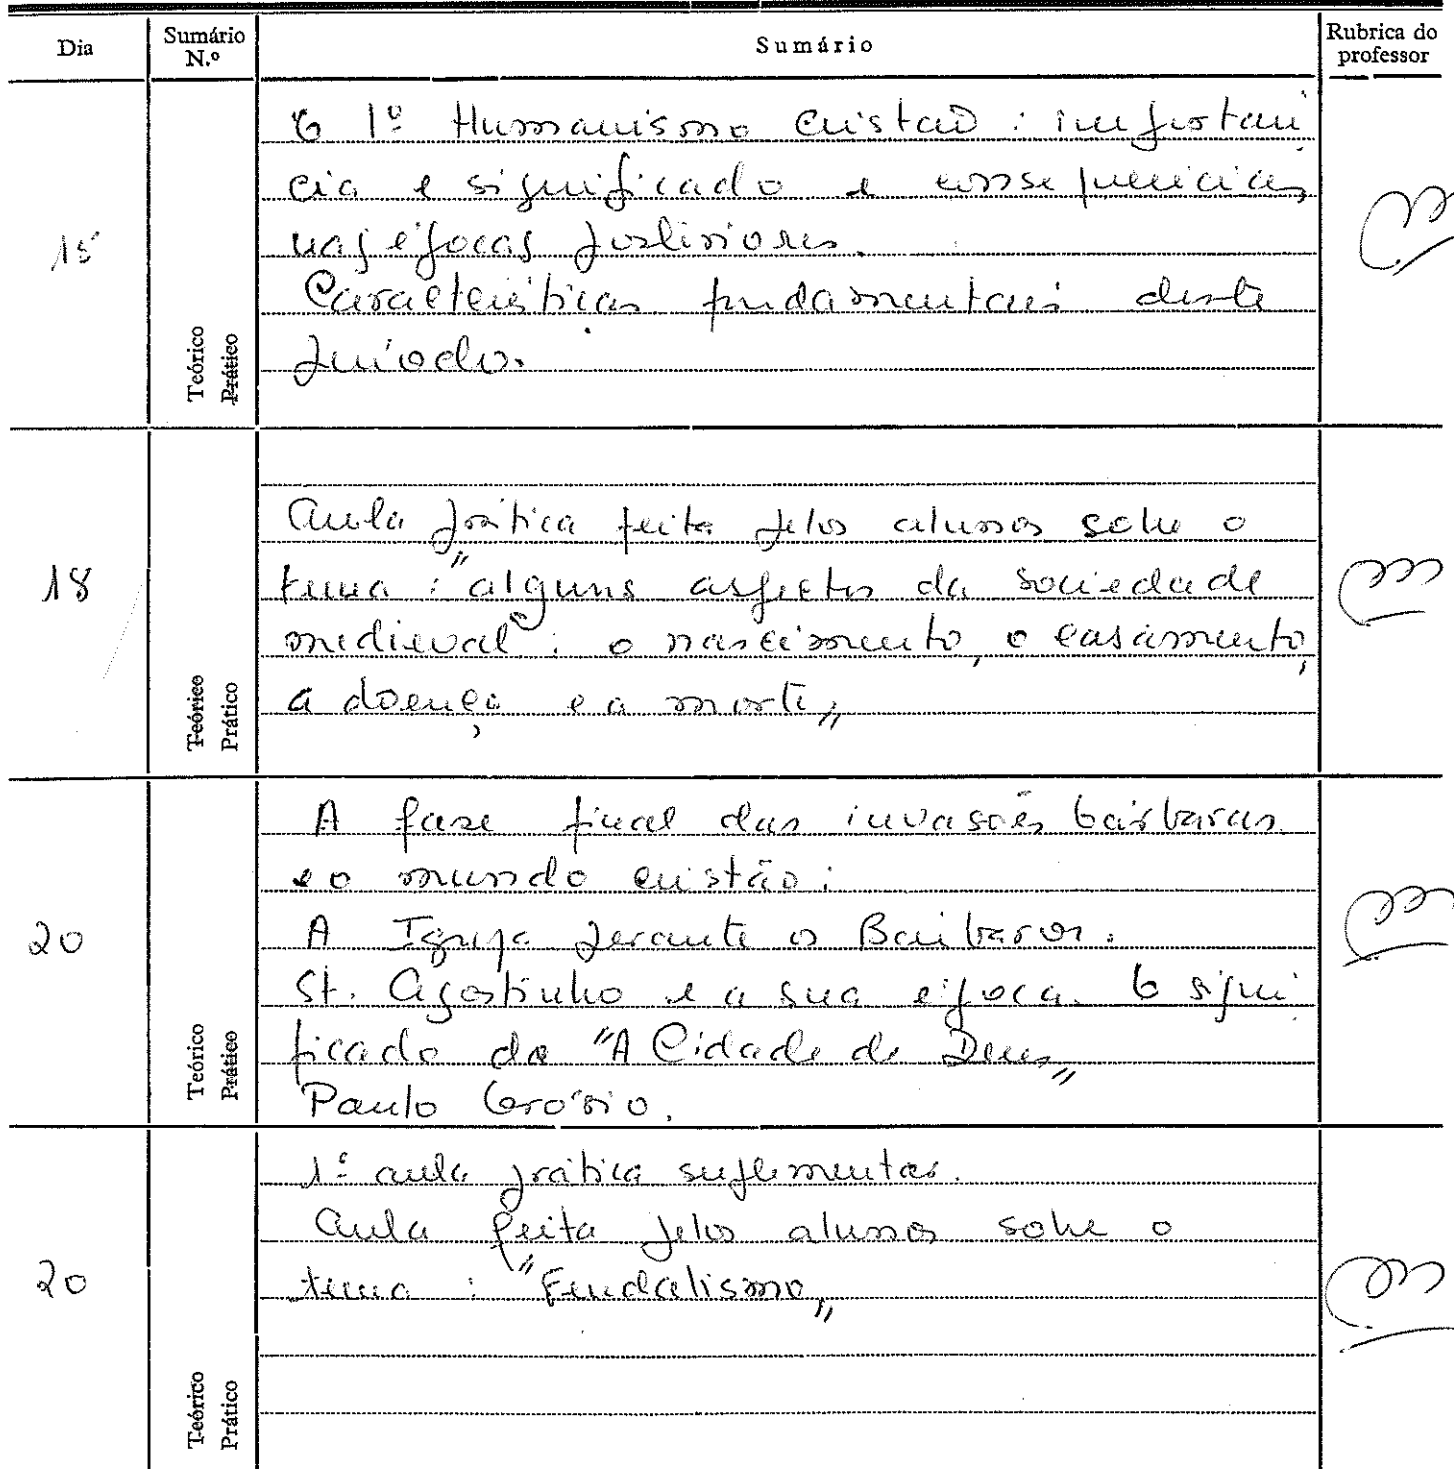 Dia Sumário N.º Sumário Rubrica do professor
15 Teórico Prático
O 1º Humanismo Cristão : importan
cia e significado e consequências
nas épocas posteriores.
Características fundamentais deste
período.
18 Teórico Prático
Aula prática feita pelos alunos sobre o
tema : "alguns aspectos da sociedade
medieval : o nascimento, o casamento,
a doença e a morte"
20 Teórico Prático
A fase final das invasões bárbaras
e o mundo cristão :
A Igreja perante os Bárbaros.
St. Agostinho e a sua época. O signi
ficado da "A Cidade de Deus"
Paulo Orósio.
20 Teórico Prático
1ª aula prática suplementar.
Aula feita pelos alunos sobre o
tema : "Feudalismo"